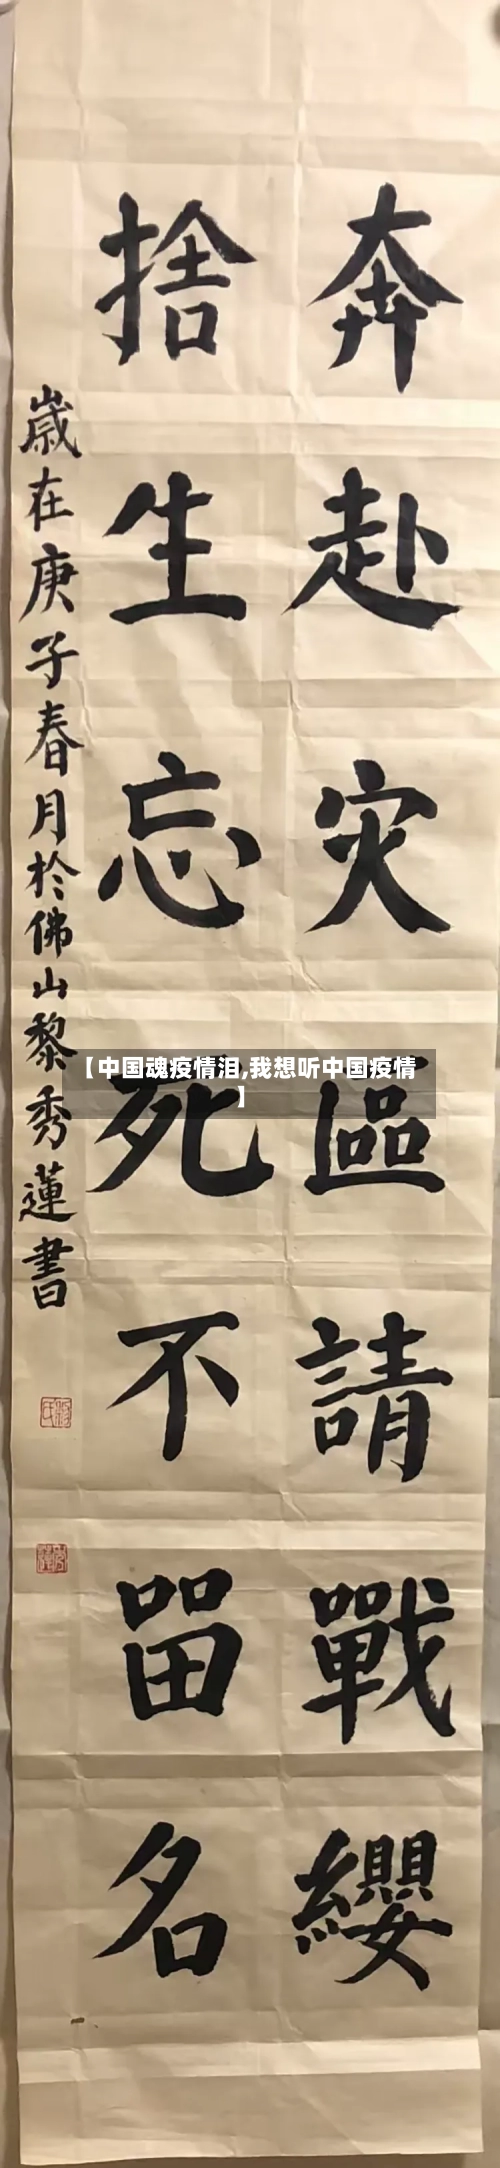 奔赴灾區請戰纓
捨生忘死不畱名
歲在庚子春月於佛山黎秀蓮書
【中国魂疫情泪,我想听中国疫情
】